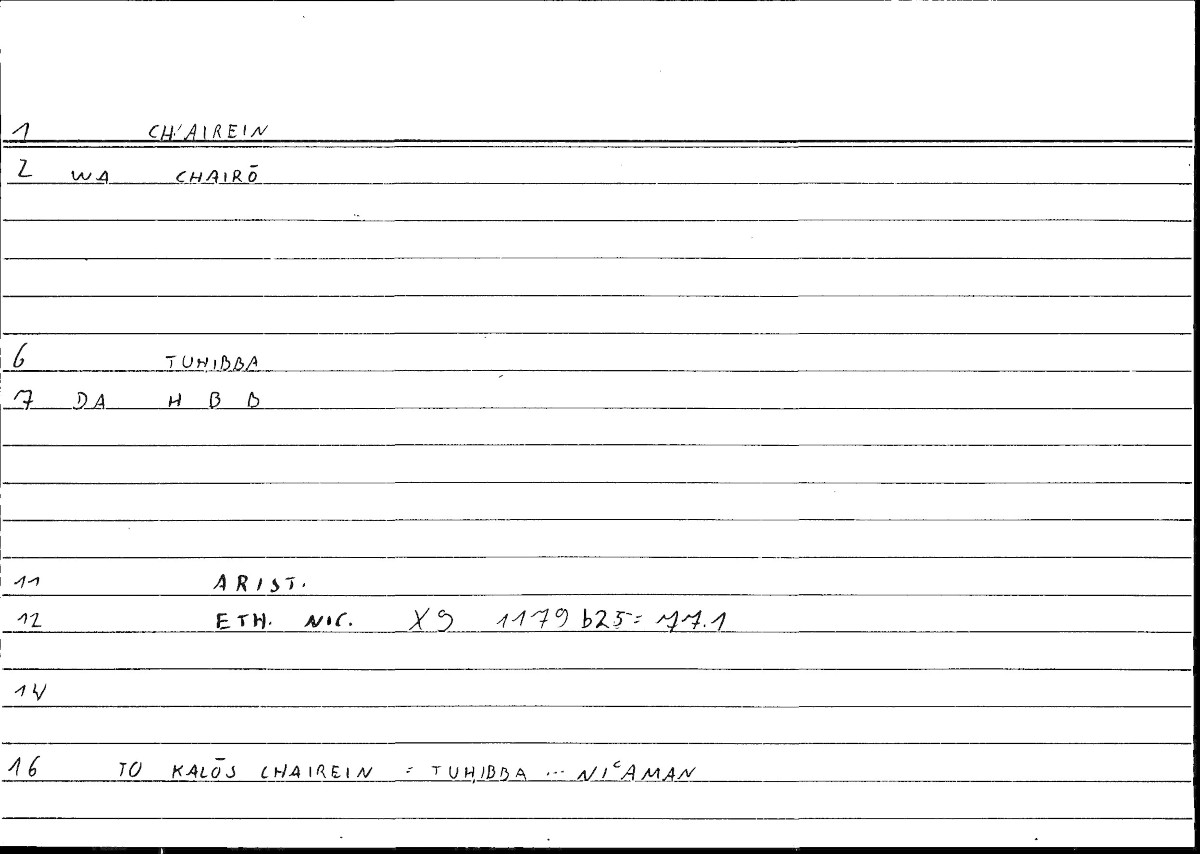 1 CH'AIREIN
2 WA CHAIRŌ
6 TUHIBBA
7 DA H B B
11 ARIST.
12 ETH. NIC. X9 1179 b25 = 77.1
14
16 TO KALŌS CHAIREIN = TUHIBBA ... NIᶜAMAN